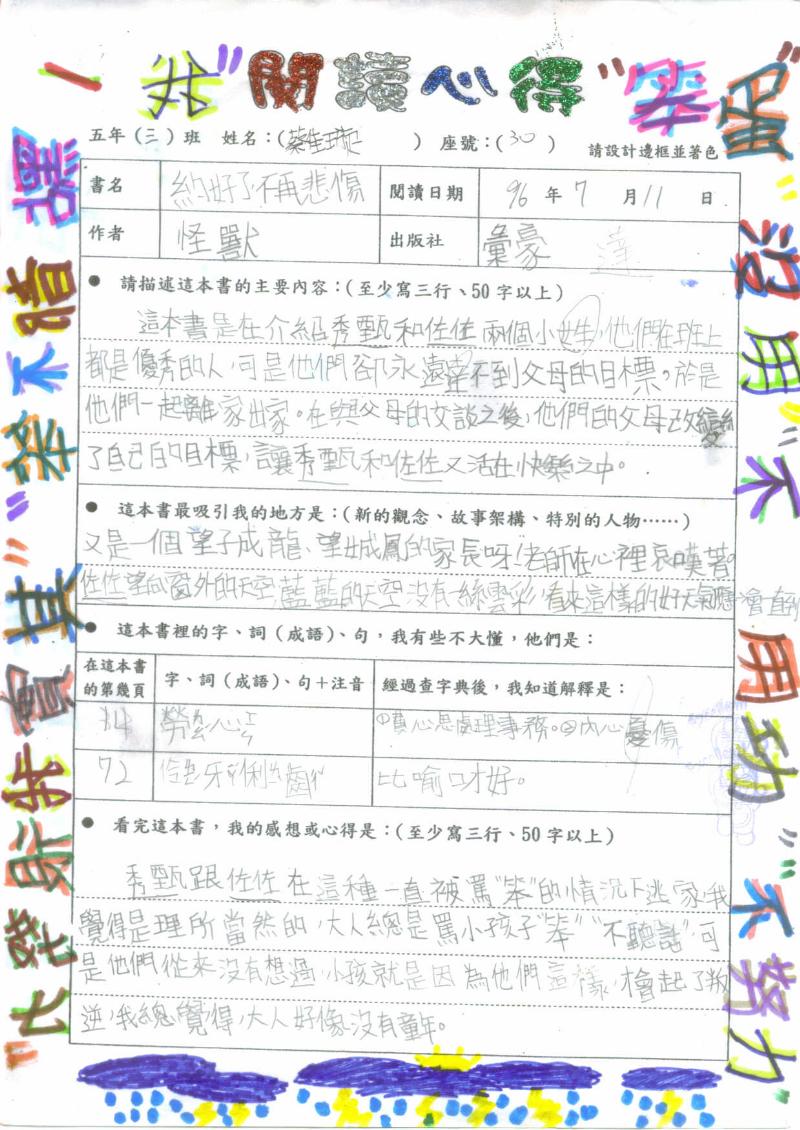 閱讀心得
五年(三)班 姓名:(蔡 ) 座號:(30)
請設計邊框並著色
書名 約好了不再悲傷 閱讀日期 96年7月11日
作者 怪獸 出版社 彙豪達
● 請描述這本書的主要內容:(至少寫三行、50字以上)
這本書是在介紹秀甄和佐佐兩個小女生,他們在班上
都是優秀的人,可是他們卻永遠達不到父母的目標。於是
他們一起離家出家。在與父母的交談之後,他們的父母改變
了自己的目標,讓秀甄和佐佐又活在快樂之中。
● 這本書最吸引我的地方是:(新的觀念、故事架構、特別的人物……)
又是一個望子成龍、望女成鳳的家長呀!老師在心裡哀嘆著。
佐佐望向窗外的天空,藍藍的天空沒有一絲雲彩,看來這樣的好天氣應會直到
● 這本書裡的字、詞(成語)、句,我有些不大懂,他們是:
在這本書的第幾頁 字、詞(成語)、句+注音 經過查字典後,我知道解釋是:
14 勞心 ①費心思處理事務。②內心憂傷
72 伶牙俐齒 比喻口才好。
● 看完這本書,我的感想或心得是:(至少寫三行、50字以上)
秀甄跟佐佐在這種一直被罵"笨"的情況下逃家,我
覺得是理所當然的,大人總是罵小孩子"笨""不聽話",可
是他們從來沒有想過,小孩就是因為他們這樣,才會起了叛
逆,我總覺得,大人好像沒有童年。
"笨"
"沒用"不
用功""不努力"
其實